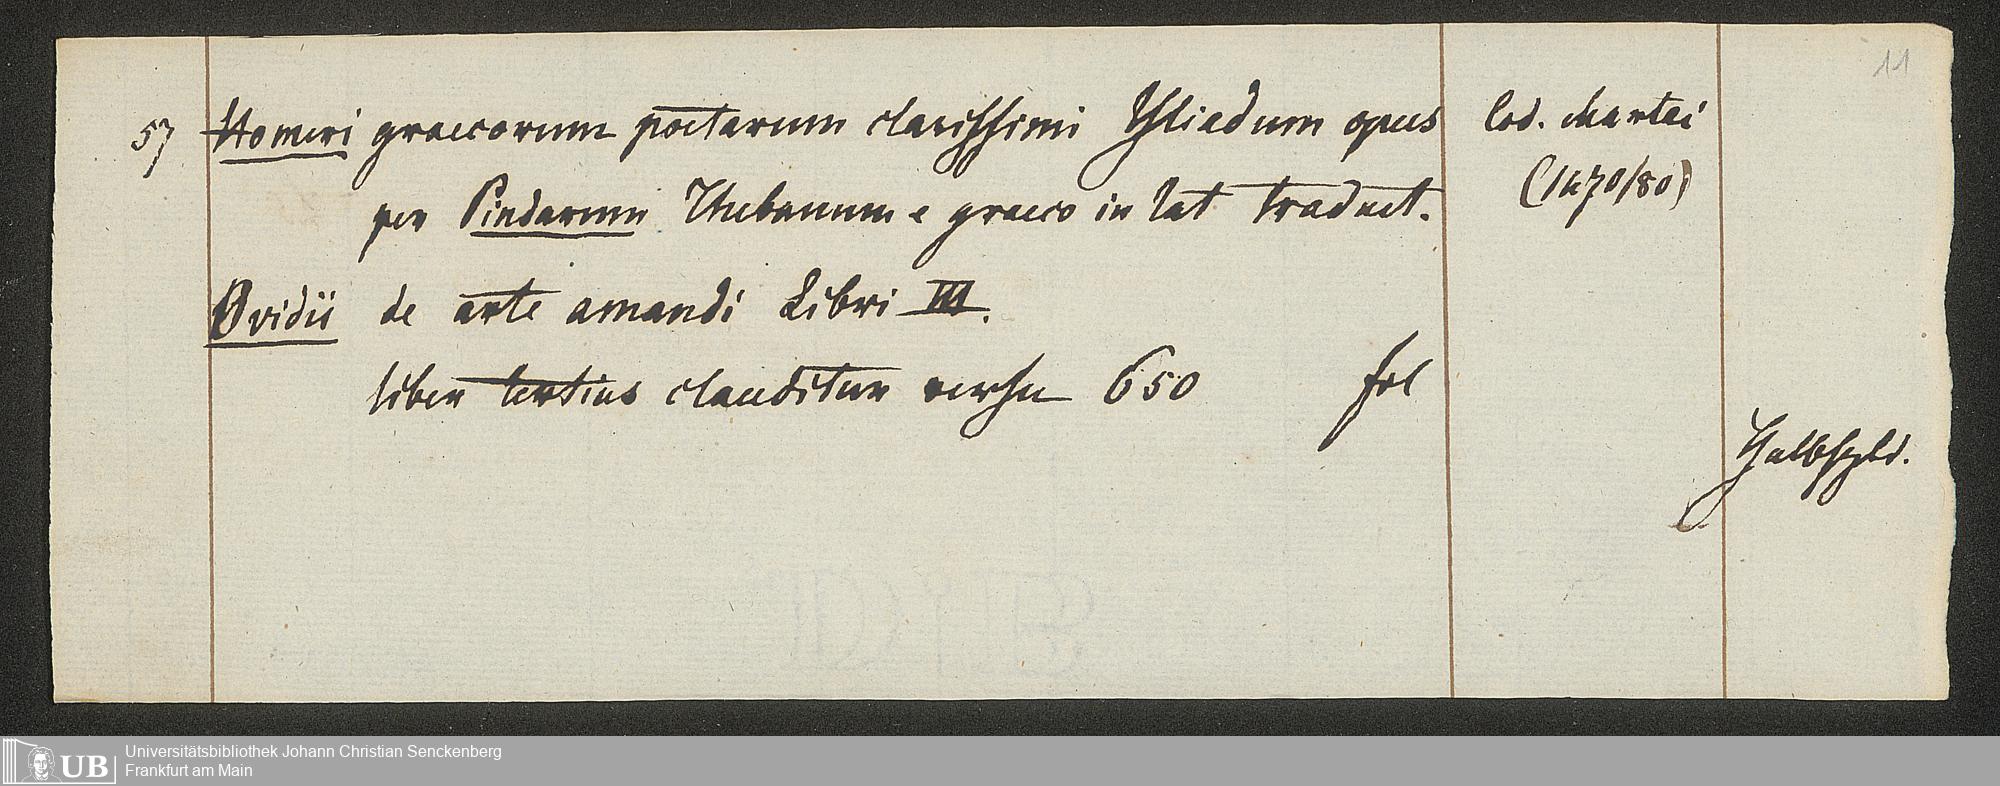 11
57 Homeri graecorum poetarum clarissimi Yliadum opus
Cod. chartai
per Pindarum Thebanum e graeco in lat traduct.
(1470/80)
Ovidii de arte amandi Libri III.
liber tertius clauditur versu 650 fol
Halbfzbd.
Universitätsbibliothek Johann Christian Senckenberg
Frankfurt am Main
UB